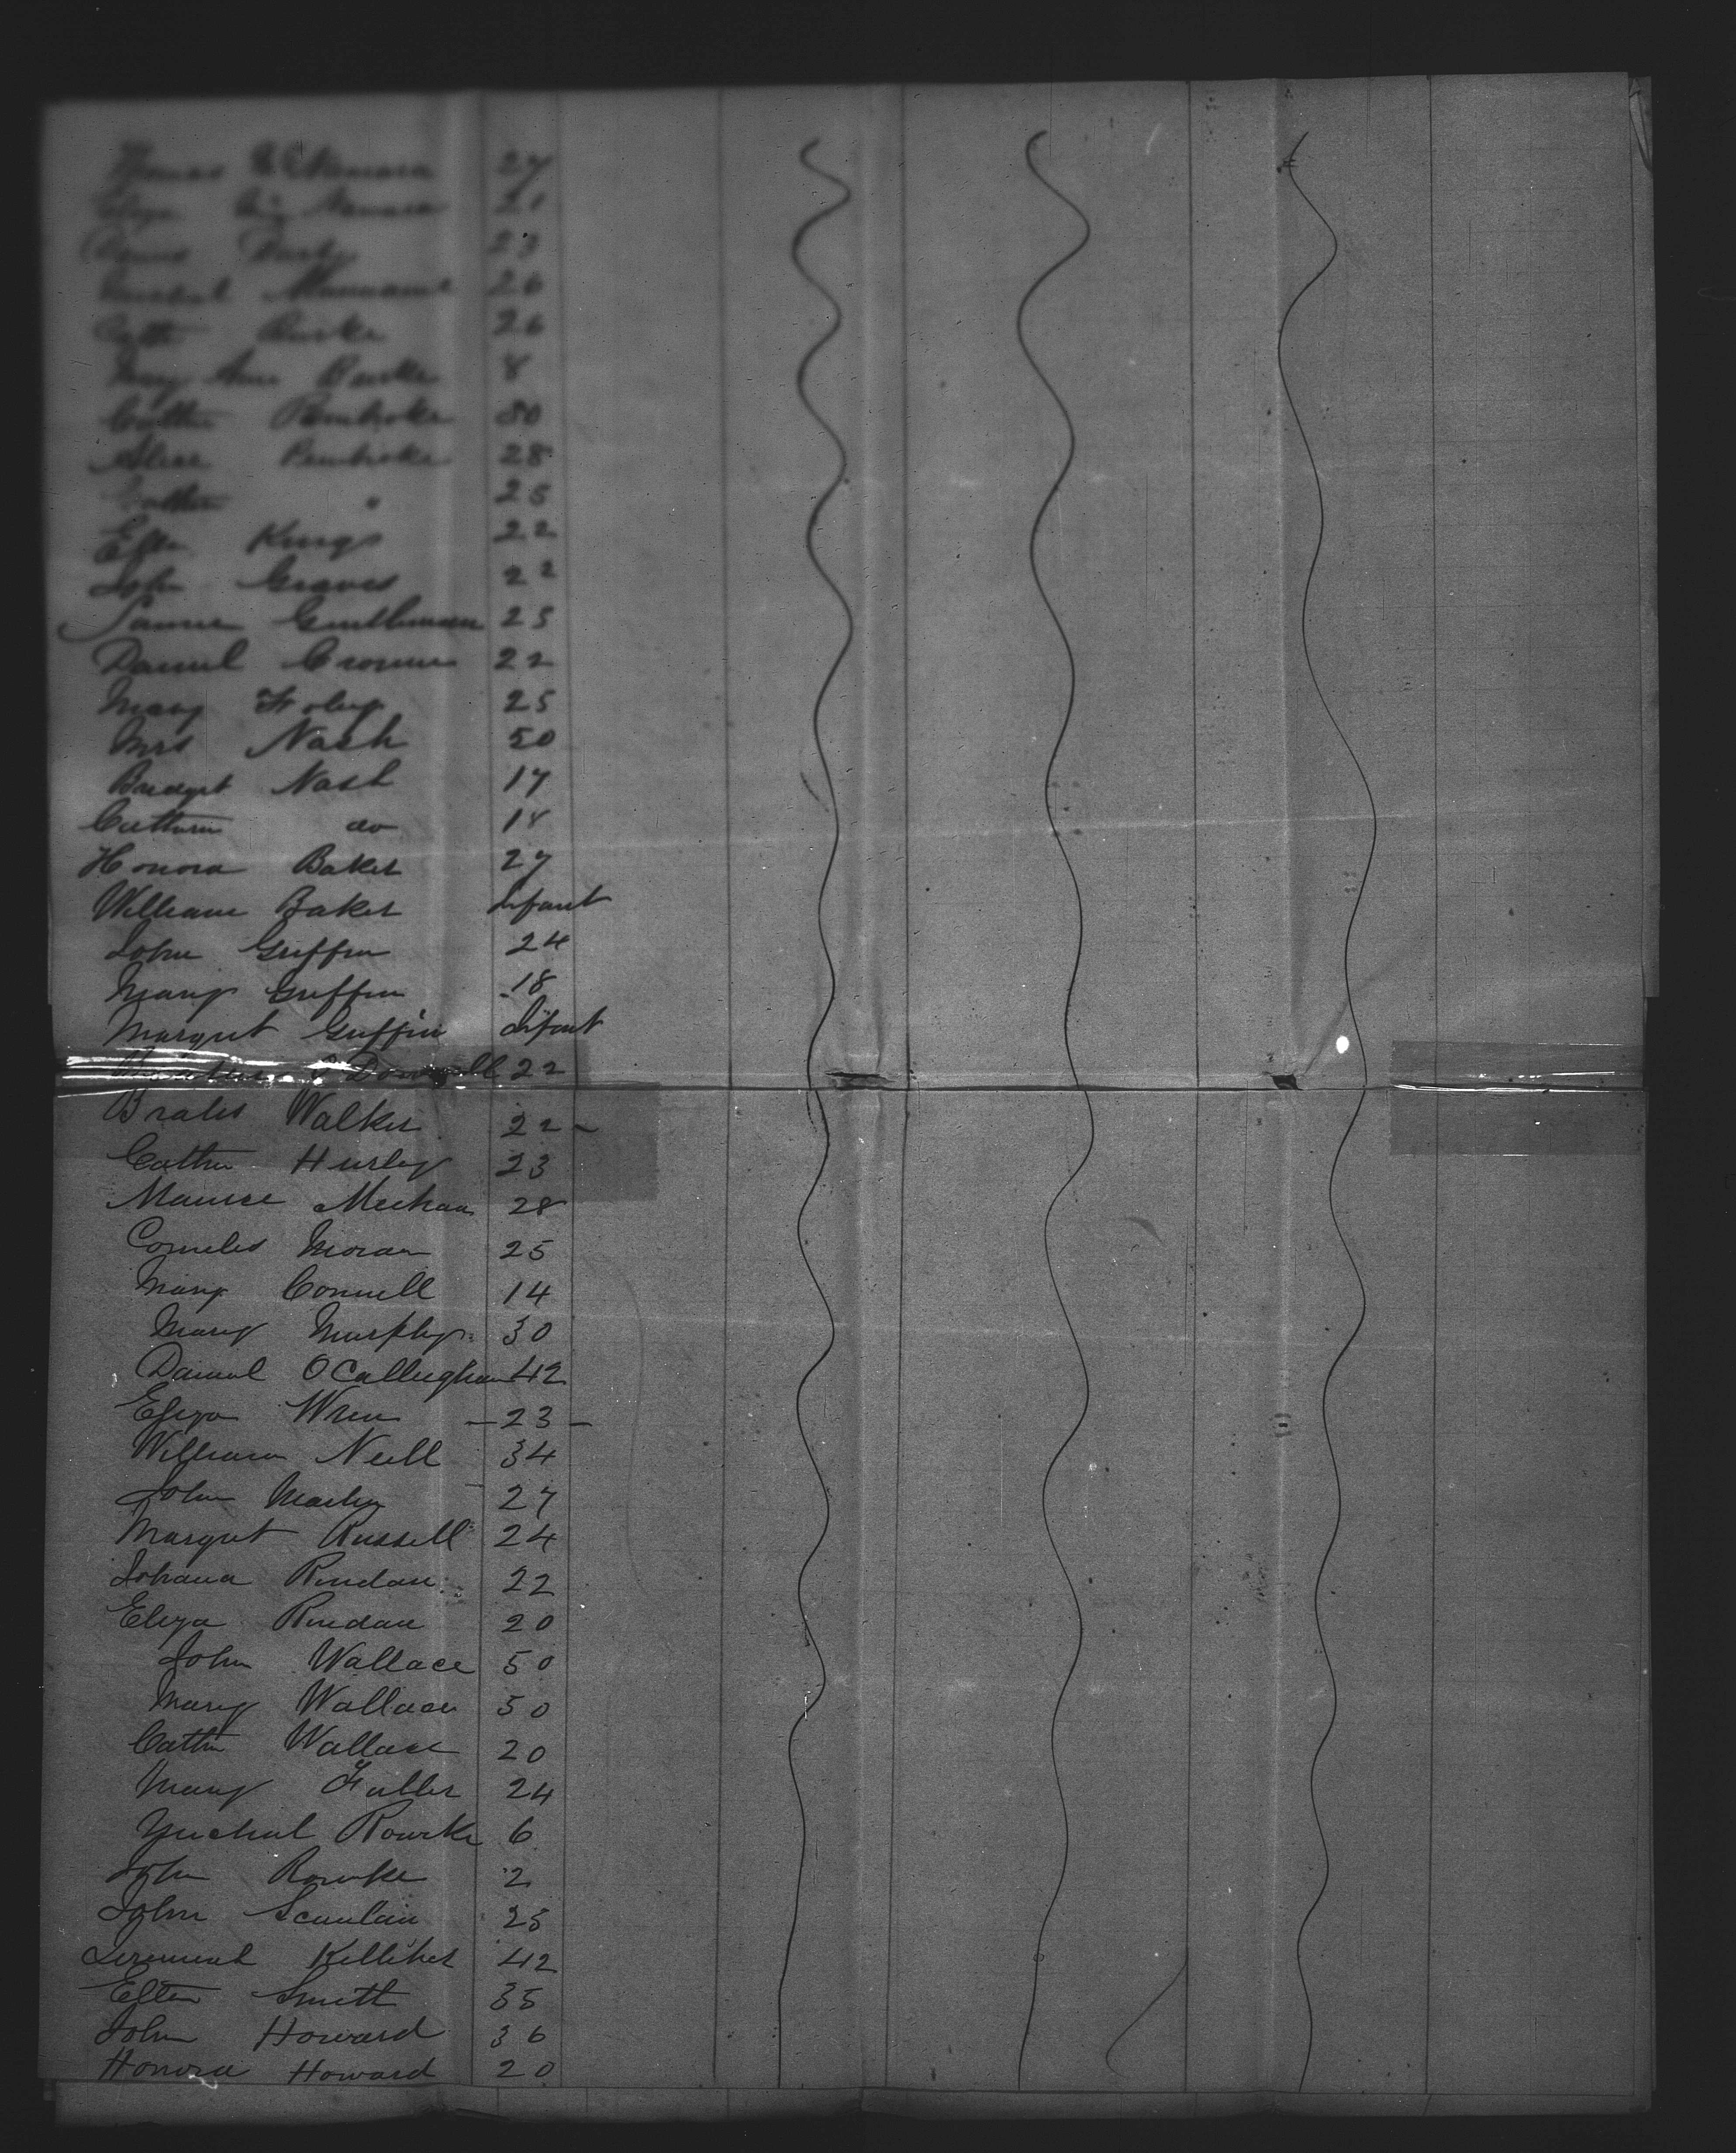 Thomas McNamara 27
Eliza McNamara 21
Darby 23
26
Cath Burke 26
May Ann Burke 8
Cathn Pembroke 50
Alice Pembroke 28
Cathn " 25
Ellen Kings 22
John Graves 22
Gentleman 25
Daniel Cronin 22
Mary Foley 25
Mrs Nash 50
Bridget Nash 17
Cathrin do 14
Honora Baker 27
William Baker Infant
John Griffin 24
Mary Griffin 18
Margret Griffin Infant
22
Walker 22
Cathn Hurley 23
Maurice Meehan 28
Cornelis Moran 25
Mary Connell 14
Mary Murphy 30
Daniel OCalleghan 42
Eliza Wren 23
William Neill 34
John 27
Margret Russell 24
Johana Rindan 22
Eliza Rindan 20
John Wallace 50
Mary Wallace 50
Cathn Wallace 20
Mary Fuller 24
Michael Rourke 6
John Rourke 2
John Scanlain 25
Jeremiah Kelliher 42
Ellen Smith 35
John Howard 36
Honora Howard 20